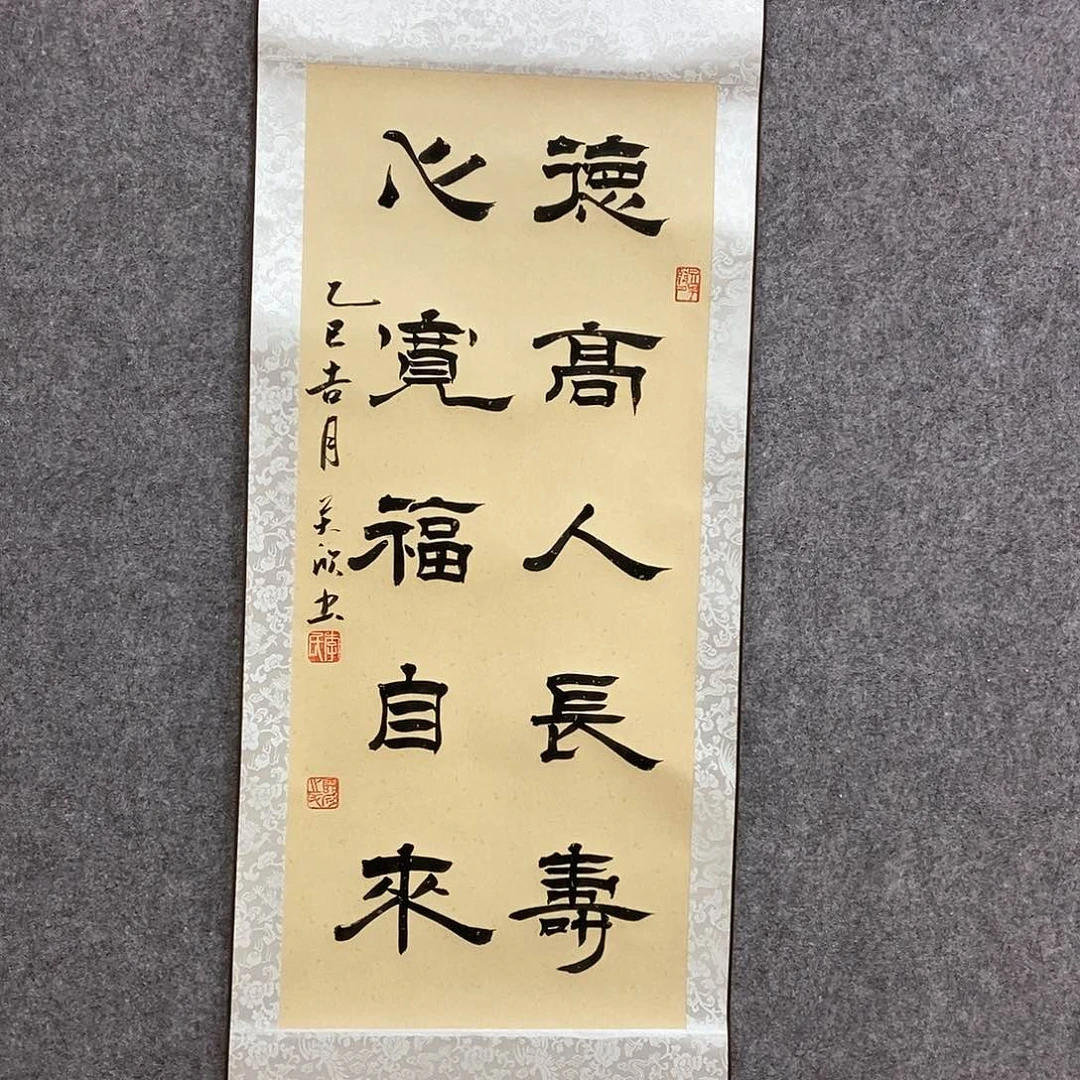 德高人長壽
心寬福自來
乙巳吉月 欣书